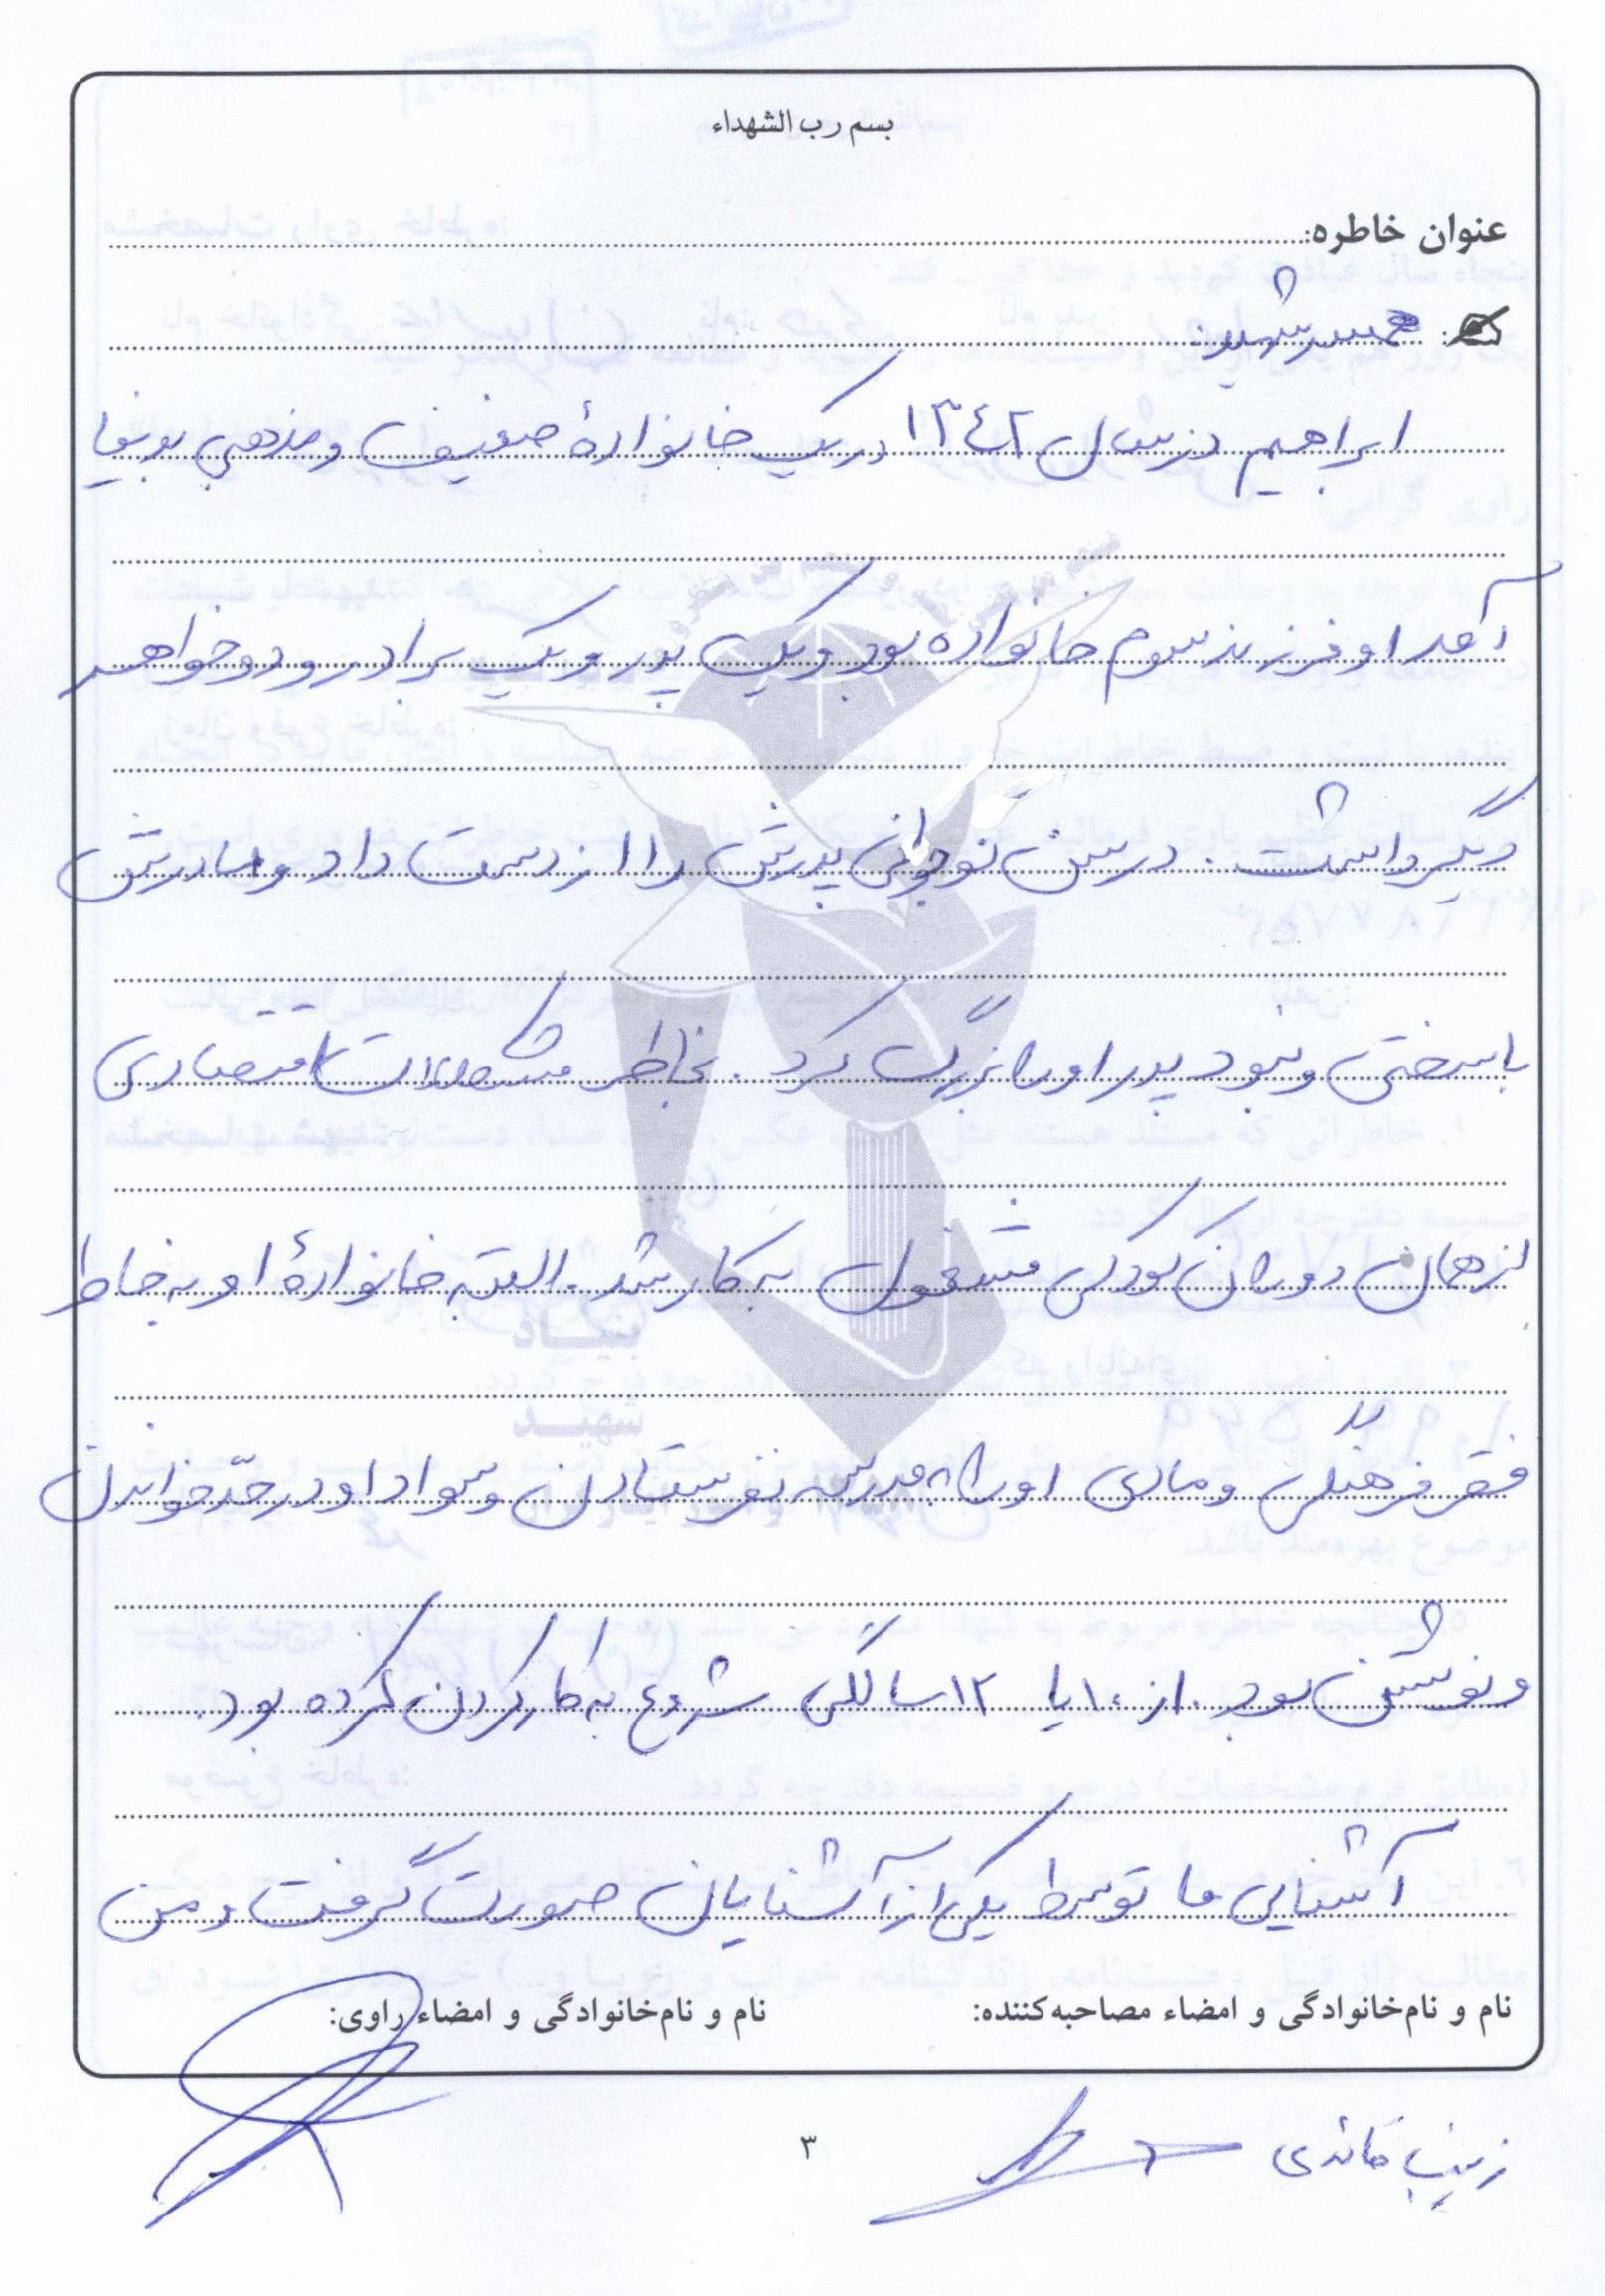 بسم رب الشهداء
عنوان خاطره:
همسر شهید:
ابراهیم در سال ۱۳۴۲ در یک خانوادهٔ ضعیف و مذهبی بدنیا
آمد او فرزند سوم خانواده بود و یک پدر و یک برادر و دو خواهر
دیگر داشت. در سن نوجوانی پدرش را از دست داد و مادرش
با سختی و نبود پدر او را بزرگ کرد. بخاطر مشکلات اقتصادی
از همان دوران کودکی مشغول به کار شد. البته خانوادهٔ او به خاطر
فقر فرهنگی و مادی او را به مدرسه نفرستادن و سواد او در حدّ خواندن
و نوشتن بود. از ۱۰ یا ۱۲ سالگی شروع به کار کردن کرده بود.
آشنایی ما توسط یکی از آشنایان صورت گرفت و من
نام و نام‌خانوادگی و امضاء مصاحبه‌کننده:
نام و نام‌خانوادگی و امضاء راوی:
زینب
۳